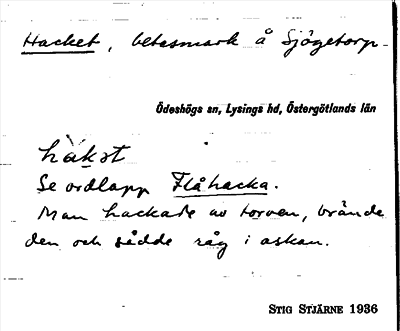 Hacket, betesmark å Sjögetorp.
Ödeshögs sn, Lysings hd, Östergötlands län
håkət
Se ordlapp Flåhacka.
Man hackade av torven, brände
den och sådde råg i askan.
STIG STJÄRNE 1936